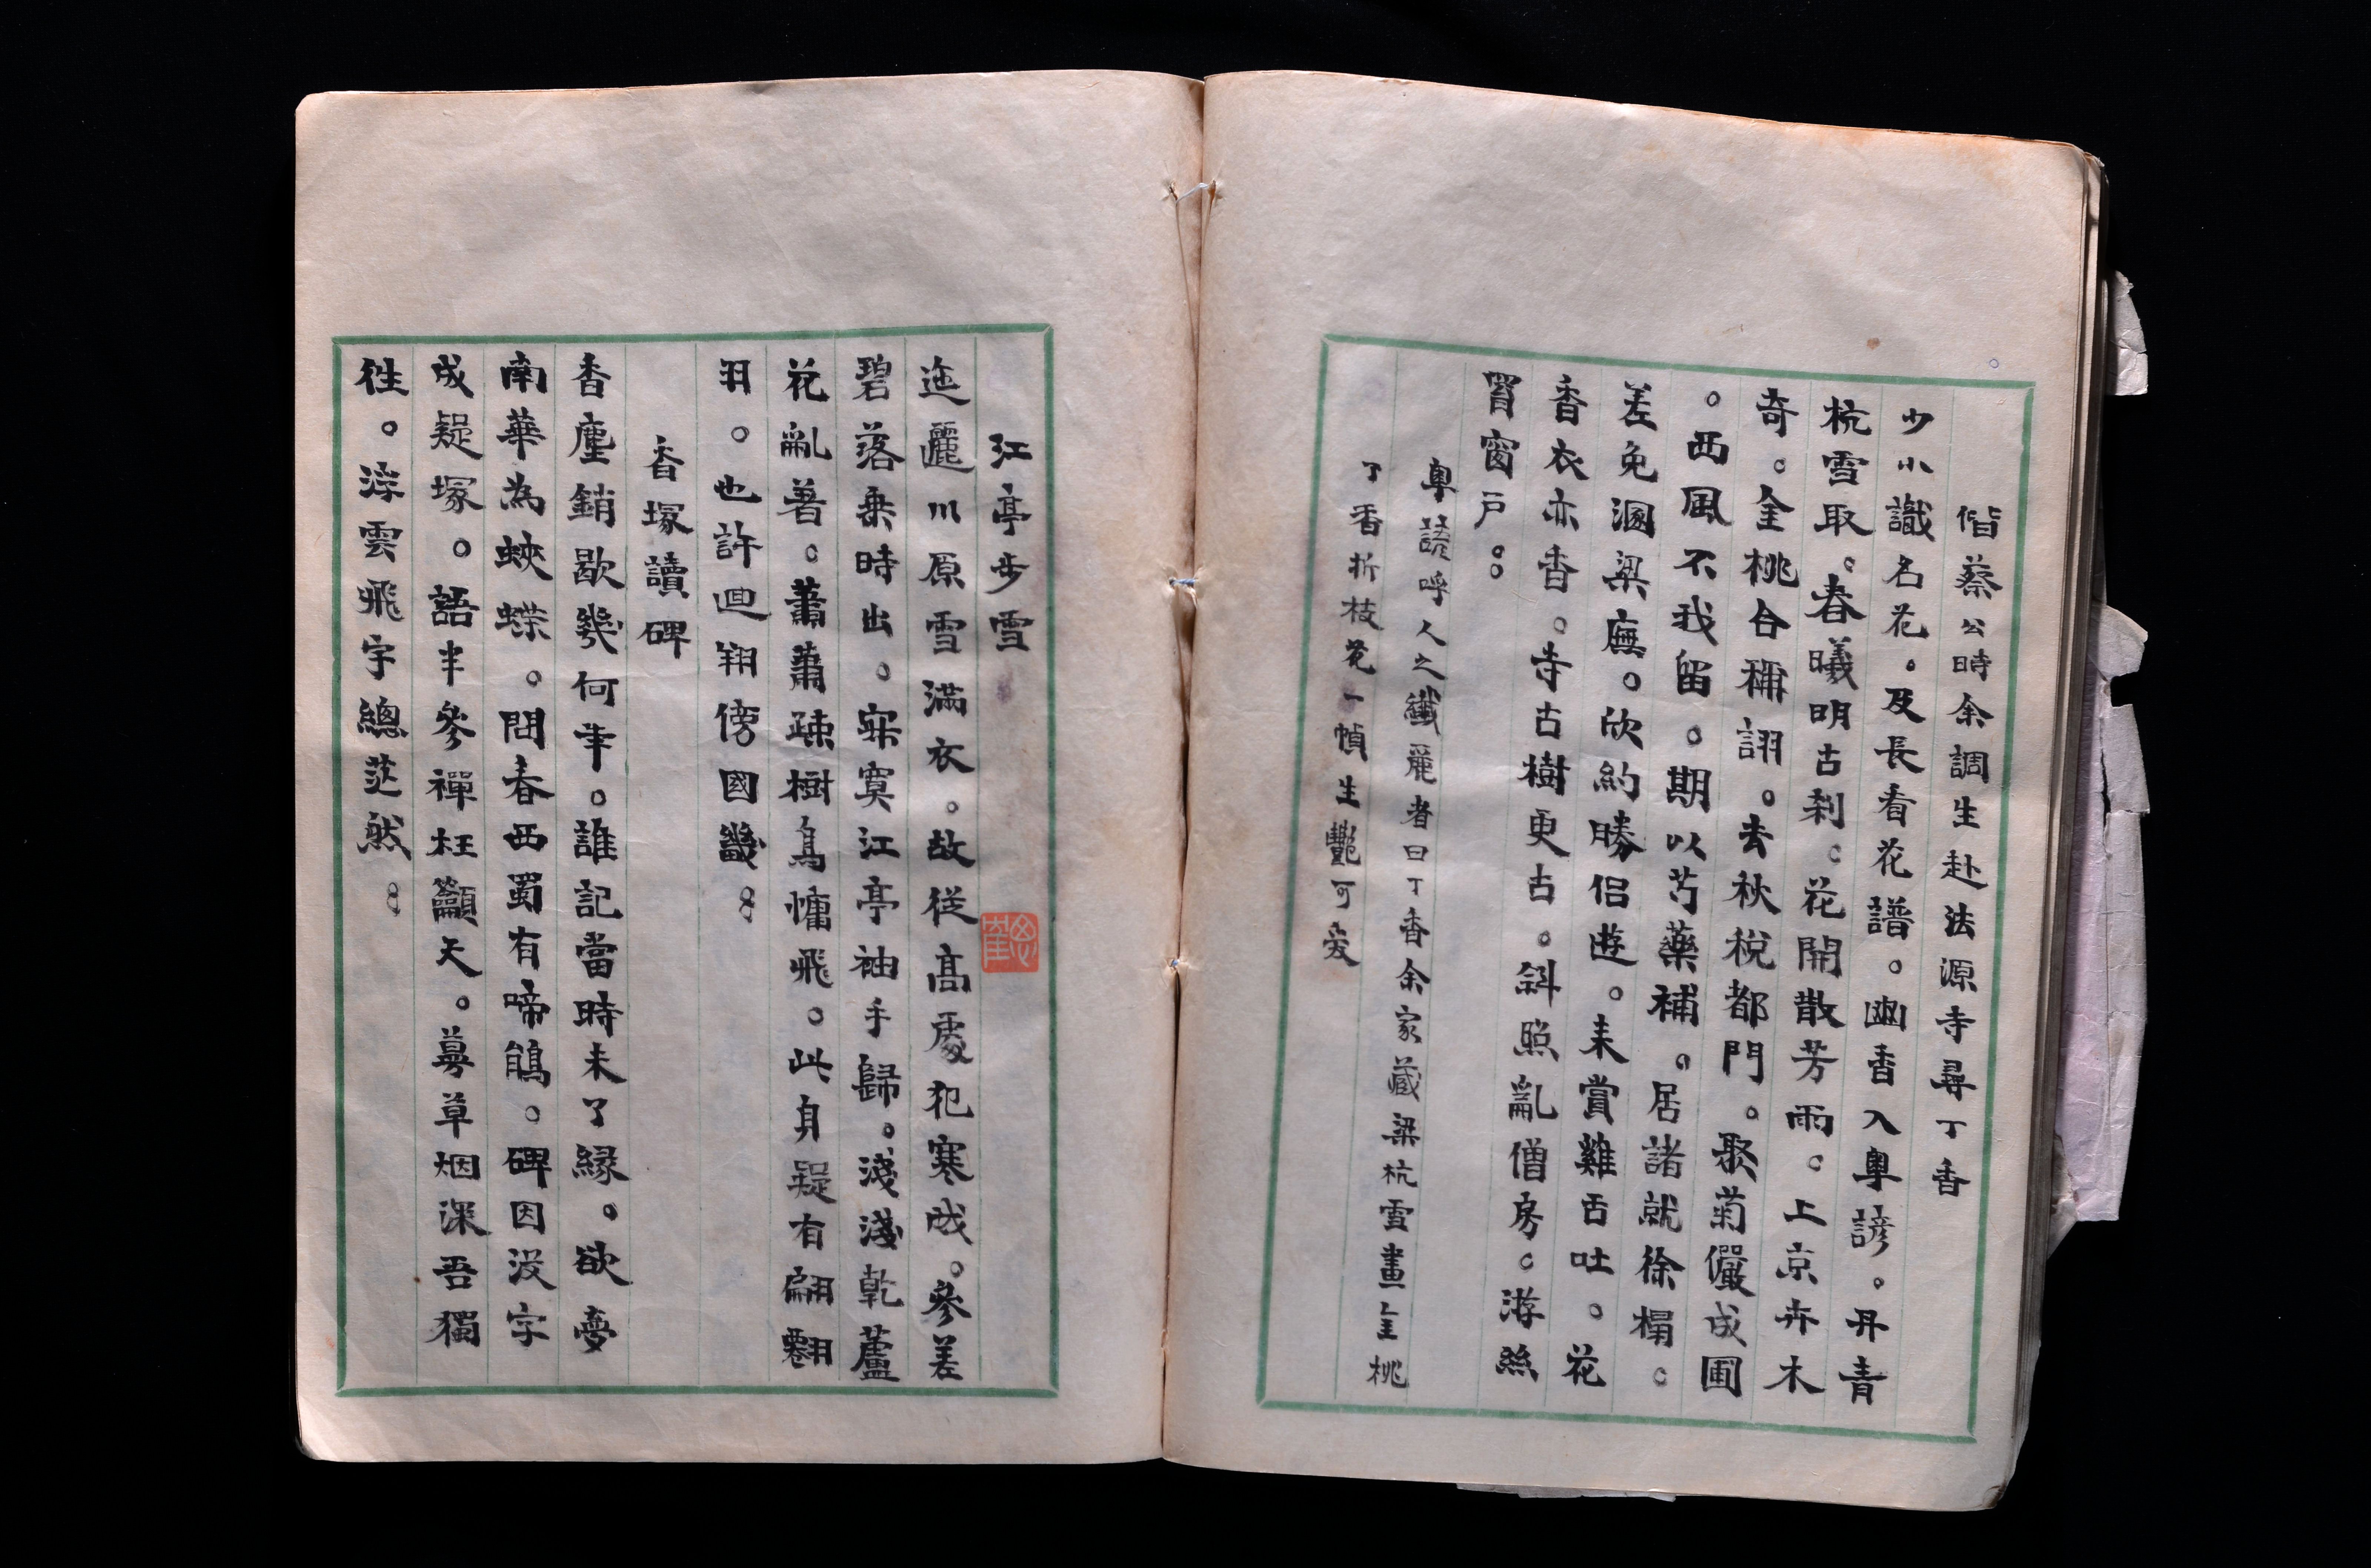 偕蔡公時余調生赴法源寺尋丁香
少小識名花。及長看花譜。幽香入粵諺。丹青
杭雪取。春曦明古刹。花開散芳雨。上京卉木
奇。金桃合稱詡。去秋稅都門。聚菊儼成圃
。西風不我留。期以芍藥補。居諸就徐榻。
差免溷梁廡。欣約勝侶遊。来賞雞舌吐。花
香衣亦香。寺古樹更古。斜照亂僧房。游絲
罥窗戶。。
粵諺呼人之纖麗者曰丁香余家藏梁杭雪畫金桃
丁香折枝花一幀生艷可爱
江亭步雪
迤邐川原雪滿衣。故從髙處犯寒威。參差
碧落乘時出。寂寞江亭袖手歸。淺淺乾蘆
花亂著。蕭蕭疎樹鳥慵飛。此身疑有翩翻
羽。也許迴翔傍國畿。。
香塚讀碑
香塵銷歇幾何年。誰記當時未了緣。欲夢
南華為蛺蝶。問春西蜀有啼鵑。碑因沒字
成疑塚。語半參禪枉籲天。蔓草烟深吾獨
往。浮雲飛宇總茫然。。